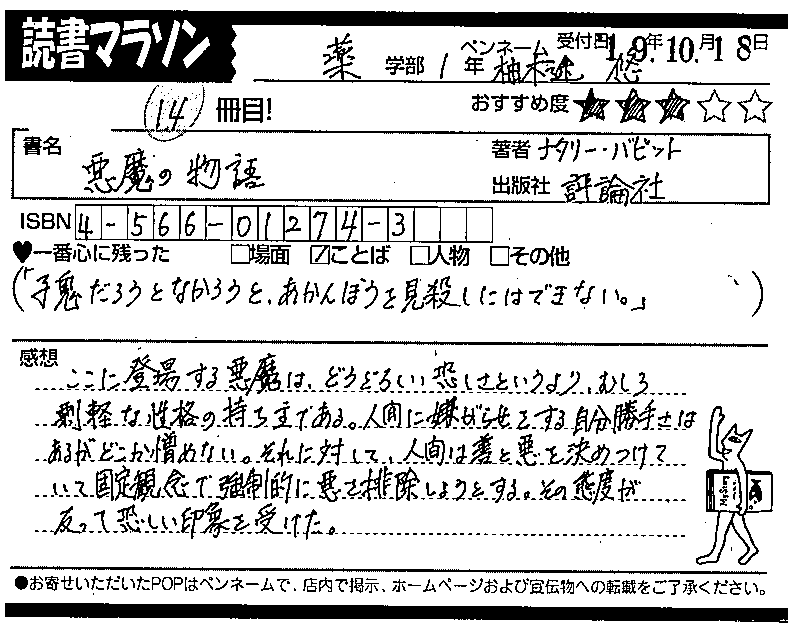 読書マラソン
薬 学部 1 年 ペンネーム 柚木 悠 受付日 19年10月18日
14 冊目! おすすめ度 ★★★☆☆
書名 悪魔の物語
著者 ナタリー・バビット
出版社 評論社
ISBN 4-566-01274-3
♥一番心に残った □場面 ☑ことば □人物 □その他
(「子鬼だろうとなかろうと、あかんぼうを見殺しにはできない。」)
感想
ここに登場する悪魔は、どうどうしい恐しさというより、むしろ
剽軽な性格の持ち主である。人間に嫌がらせをする自分勝手さは
あるがどこか憎めない。それに対して、人間は善と悪を決めつけて
いて固定観念で強制的に悪を排除しようとする。その態度が
反って恐しい印象を受けた。
●お寄せいただいたPOPはペンネームで、店内で掲示、ホームページおよび宣伝物への転載をご了承ください。